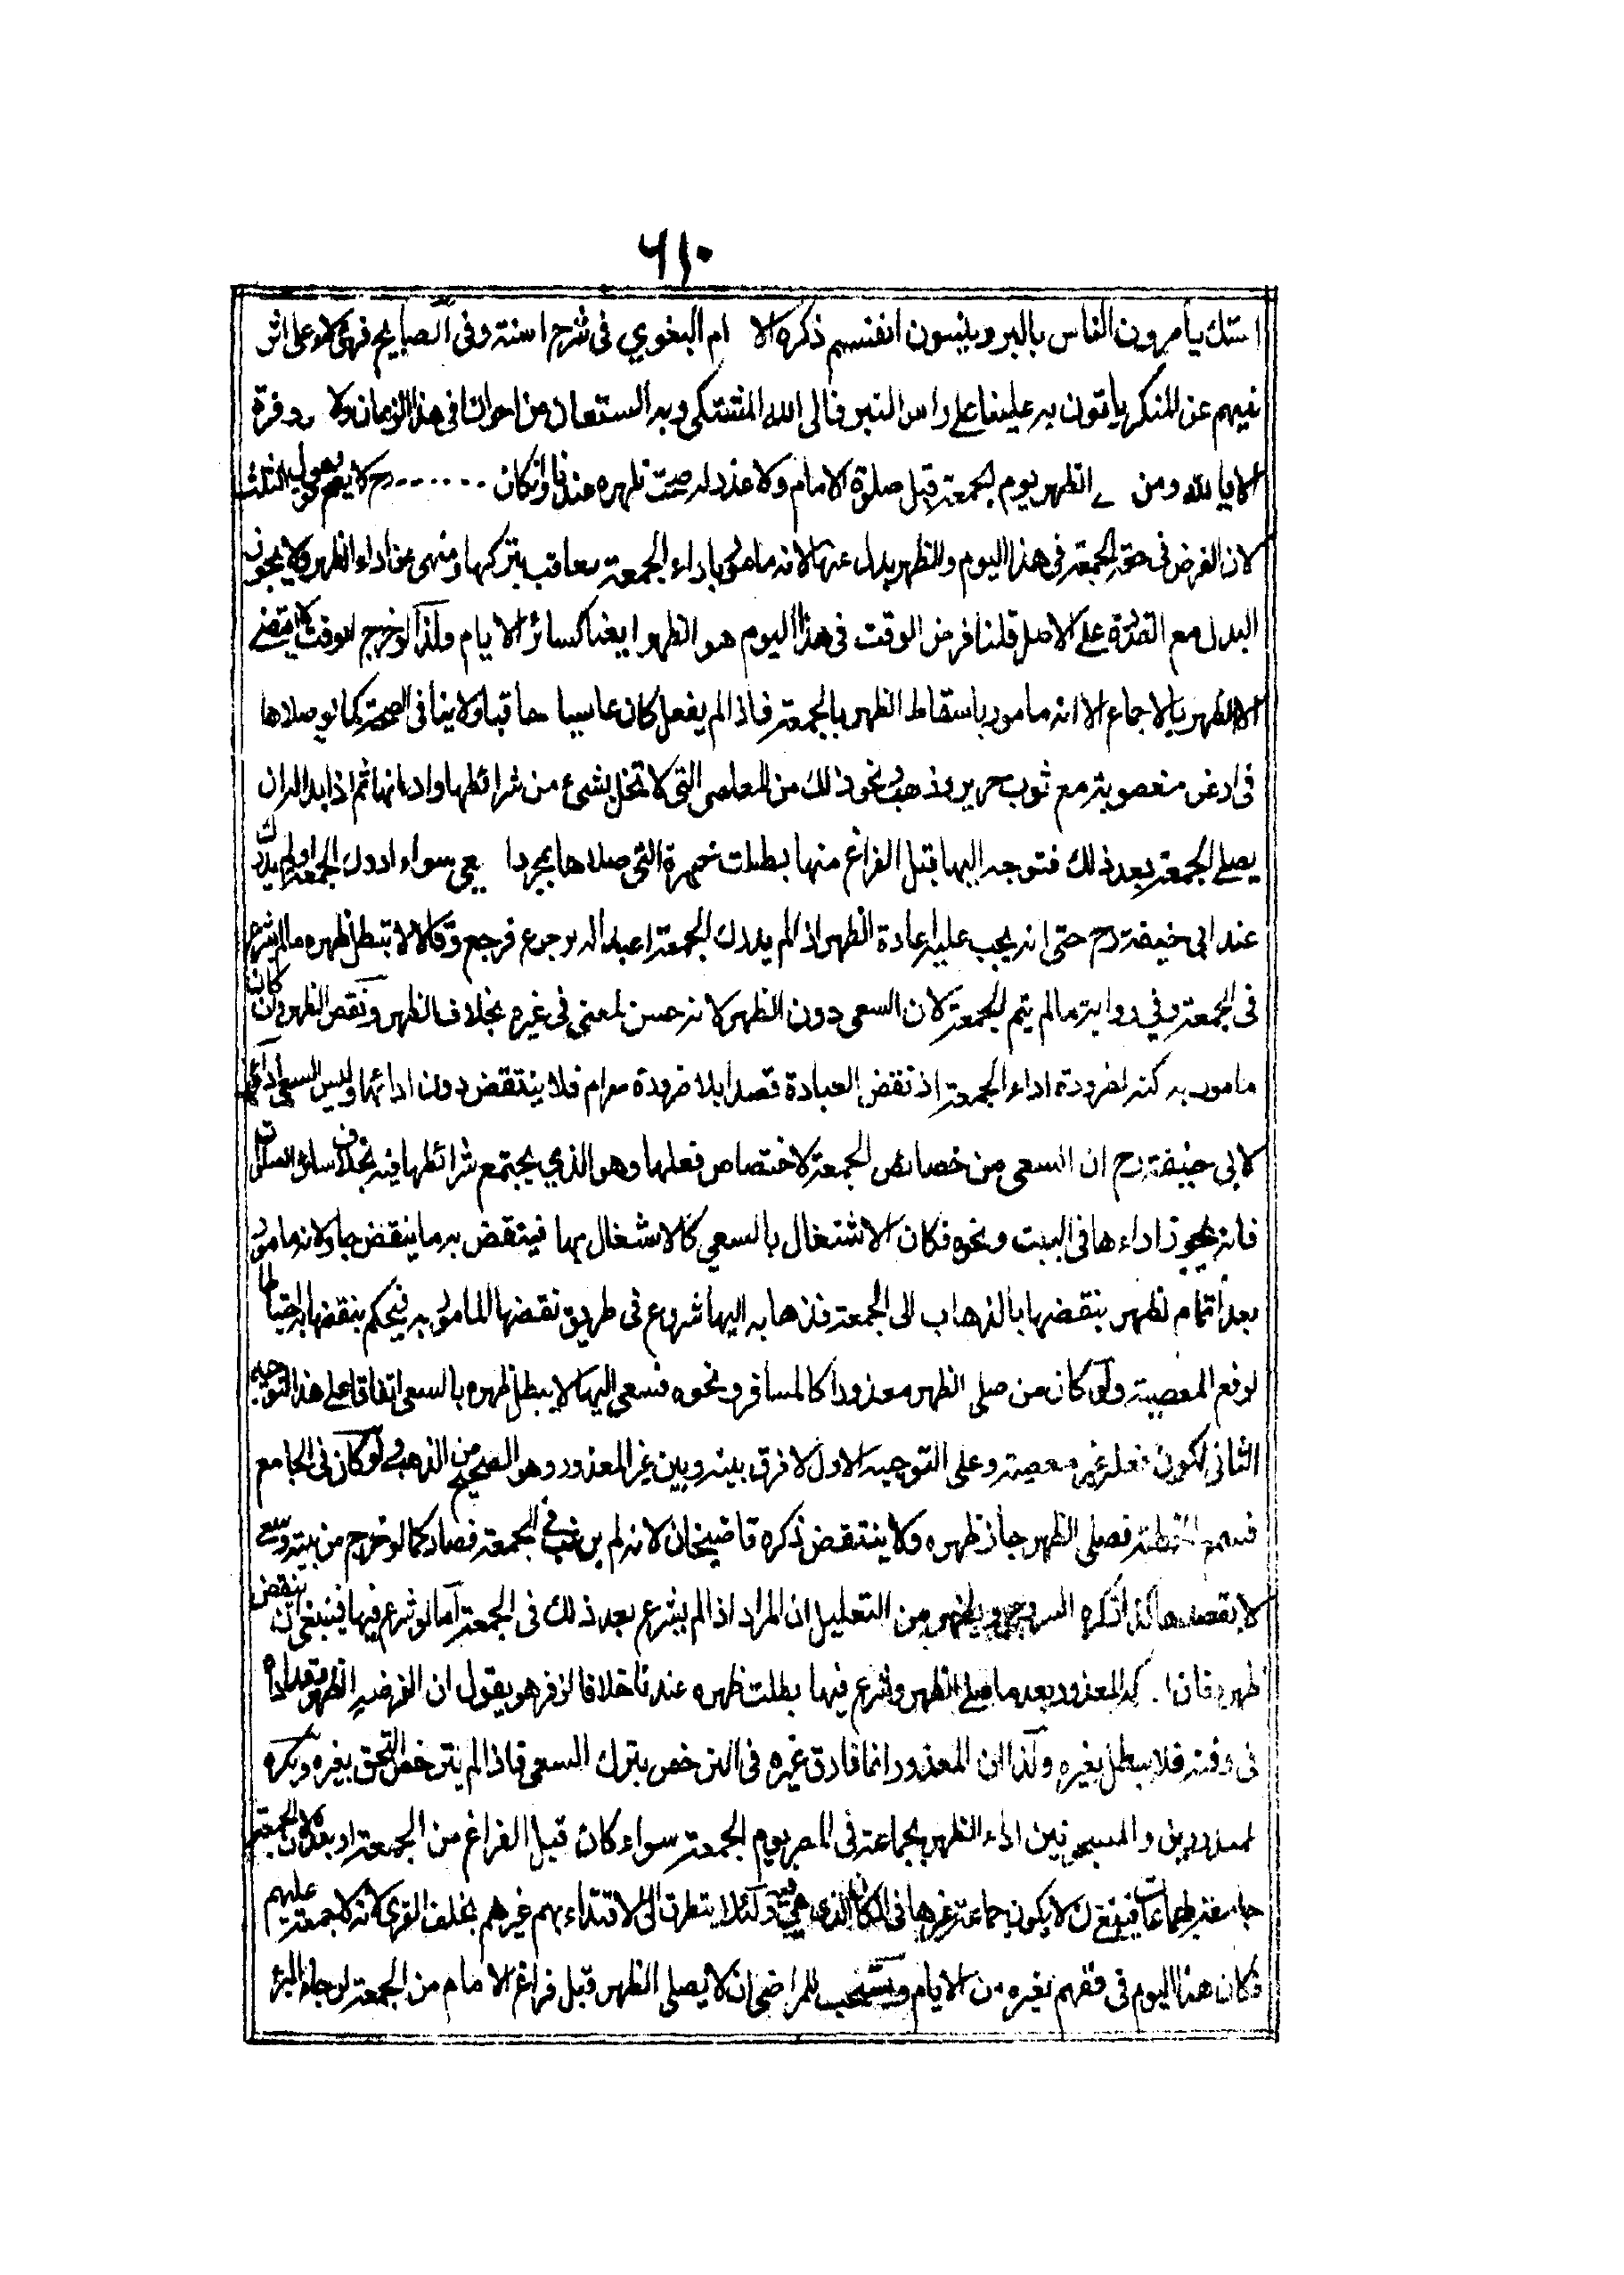 ٦١٠
امتك يأمرون الناس بالبر وينسون انفسهم ذكره الا ام البغوي في شرح السنة وفى المصابيح فهؤلاء على اثر
نهيهم عن المنكر يأتون به علينا على راس المنبر فالى الله المشتكى وبه المستعان من احوالنا فى هذا الزمان ولا قوة
الا بالله ومن الظهر يوم الجمعة قبل صلوة الامام ولا عذر له صحت ظهره عندنا وانكان ...... رح لا يصح وهو قول الثلثة
لان الفرض فى حقه الجمعة فى هذا اليوم والظهر بدل عنها لانه مامور باداء الجمعة معاقب بتركها ومنهى عن اداء الظهر ولا يجوز
البدل مع القدرة على الاصل قلنا فرض الوقت فى هذا اليوم هو الظهر ايضا كسائر الايام ولذا لو خرج الوقت لا يقضى
الا الظهر بالاجماع الا انه مامور باسقاط الظهر بالجمعة فاذا لم يفعل كان عاصيا معاقبا ولا ينافى الصحة كما لو صلاها
فى ارض مغصوبة مع ثوب حرير وذهب ونحو ذلك من المعاصى التى لا تخل بشىء من شرائطها واركانها ثم اذا بدا له ان
يصلى الجمعة بعد ذلك فتوجه اليها قبل الفراغ منها بطلت ظهره التى صلاها بمجرد السعى سواء ادرك الجمعة او لم يدرك
عند ابى حنيفة رح حتى انه يجب عليه اعادة الظهر اذا لم يدرك الجمعة او بدا له الرجوع فرجع وقالا لا تبطل ظهره ما لم يشرع
فى الجمعة وفي رواية ما لم يتم الجمعة لان السعى دون الظهر لانه حسن لمعنى فى غيره بخلاف الظهر ونقض الظهر وان كان
مامور به لكنه لضرورة اداء الجمعة اذ نقض العبادة قصدا بلا ضرورة حرام فلا ينتقض دون ادائها وليس السعى اداءها
لابى حنيفة رح ان السعى من خصائص الجمعة لاختصاص فعلها وهو الذي يجتمع شرائطها فيه بخلاف سائر الصلوات
فانه يجوز اداءها فى البيت ونحوه فكان الاشتغال بالسعي كالاشتغال بها فينتقض به ما ينتقض بها ولانه مامور
بعد اتمام الظهر بنقضها بالذهاب الى الجمعة فذهابه اليها شروع فى طريق نقضها المامور به فيحكم بنقضها به احتياطا
لرفع المعصية ولو كان من صلى الظهر معذورا كالمسافر ونحوه فسعى اليها لا يبطل ظهره بالسعى اتفاقا على هذا التوجيه
الثانى لكون فعله غير معصية وعلى التوجيه الاول لا فرق بينه وبين غير المعذور وهو الصحيح من المذهب ولو كان فى الجامع
فسمع الخطبة فصلى الظهر جاز ظهره ولا ينتقض ذكره قاضيخان لانه لم يرغب فى الجمعة فصار كما لو خرج من بيته وسعى
لا بقصدها كذا ذكره السروجى ويظهر من التعليل ان المراد اذا لم يشرع بعد ذلك فى الجمعة اما لو شرع فيها فينبغى ان ينتقض
ظهره فان المعذور بعد ما صلى الظهر وشرع فيها بطلت ظهره عندنا خلافا لزفر هو يقول ان الفرض الظهر وقد اداه
فى وقته فلا يبطل بغيره ولنا ان المعذور انما فارق غيره فى الترخص بترك السعى فاذا لم يترخص التحق بغيره ويكره
للمعذورين والمسجونين اداء الظهر بجماعة فى المصر يوم الجمعة سواء كان قبل الفراغ من الجمعة او بعده لان الجمعة
جامعة للجماعات فينبغى ان لا يكون جماعة غيرها فى المكان الذى هى فيه ولئلا يتطرق الى الاقتداء بهم غيرهم بخلاف القرى لانه لا جمعة عليهم
فكان هذا اليوم فى حقهم كغيره من الايام ويستحب للمرضى ان لا يصلى الظهر قبل فراغ الامام من الجمعة لرجاء البرء